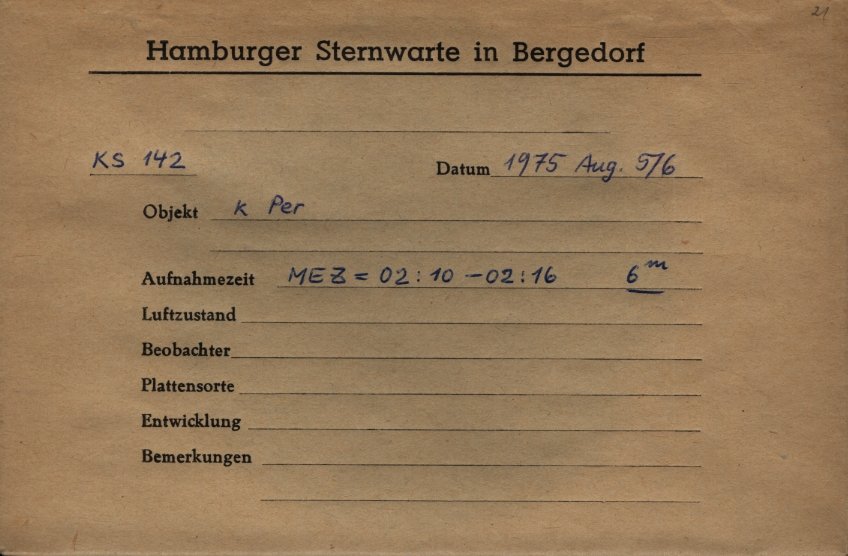 21
Hamburger Sternwarte in Bergedorf
KS 142 Datum 1975 Aug. 5/6
Objekt k Per
Aufnahmezeit MEZ = 02:10 – 02:16 6ᵐ
Luftzustand
Beobachter
Plattensorte
Entwicklung
Bemerkungen